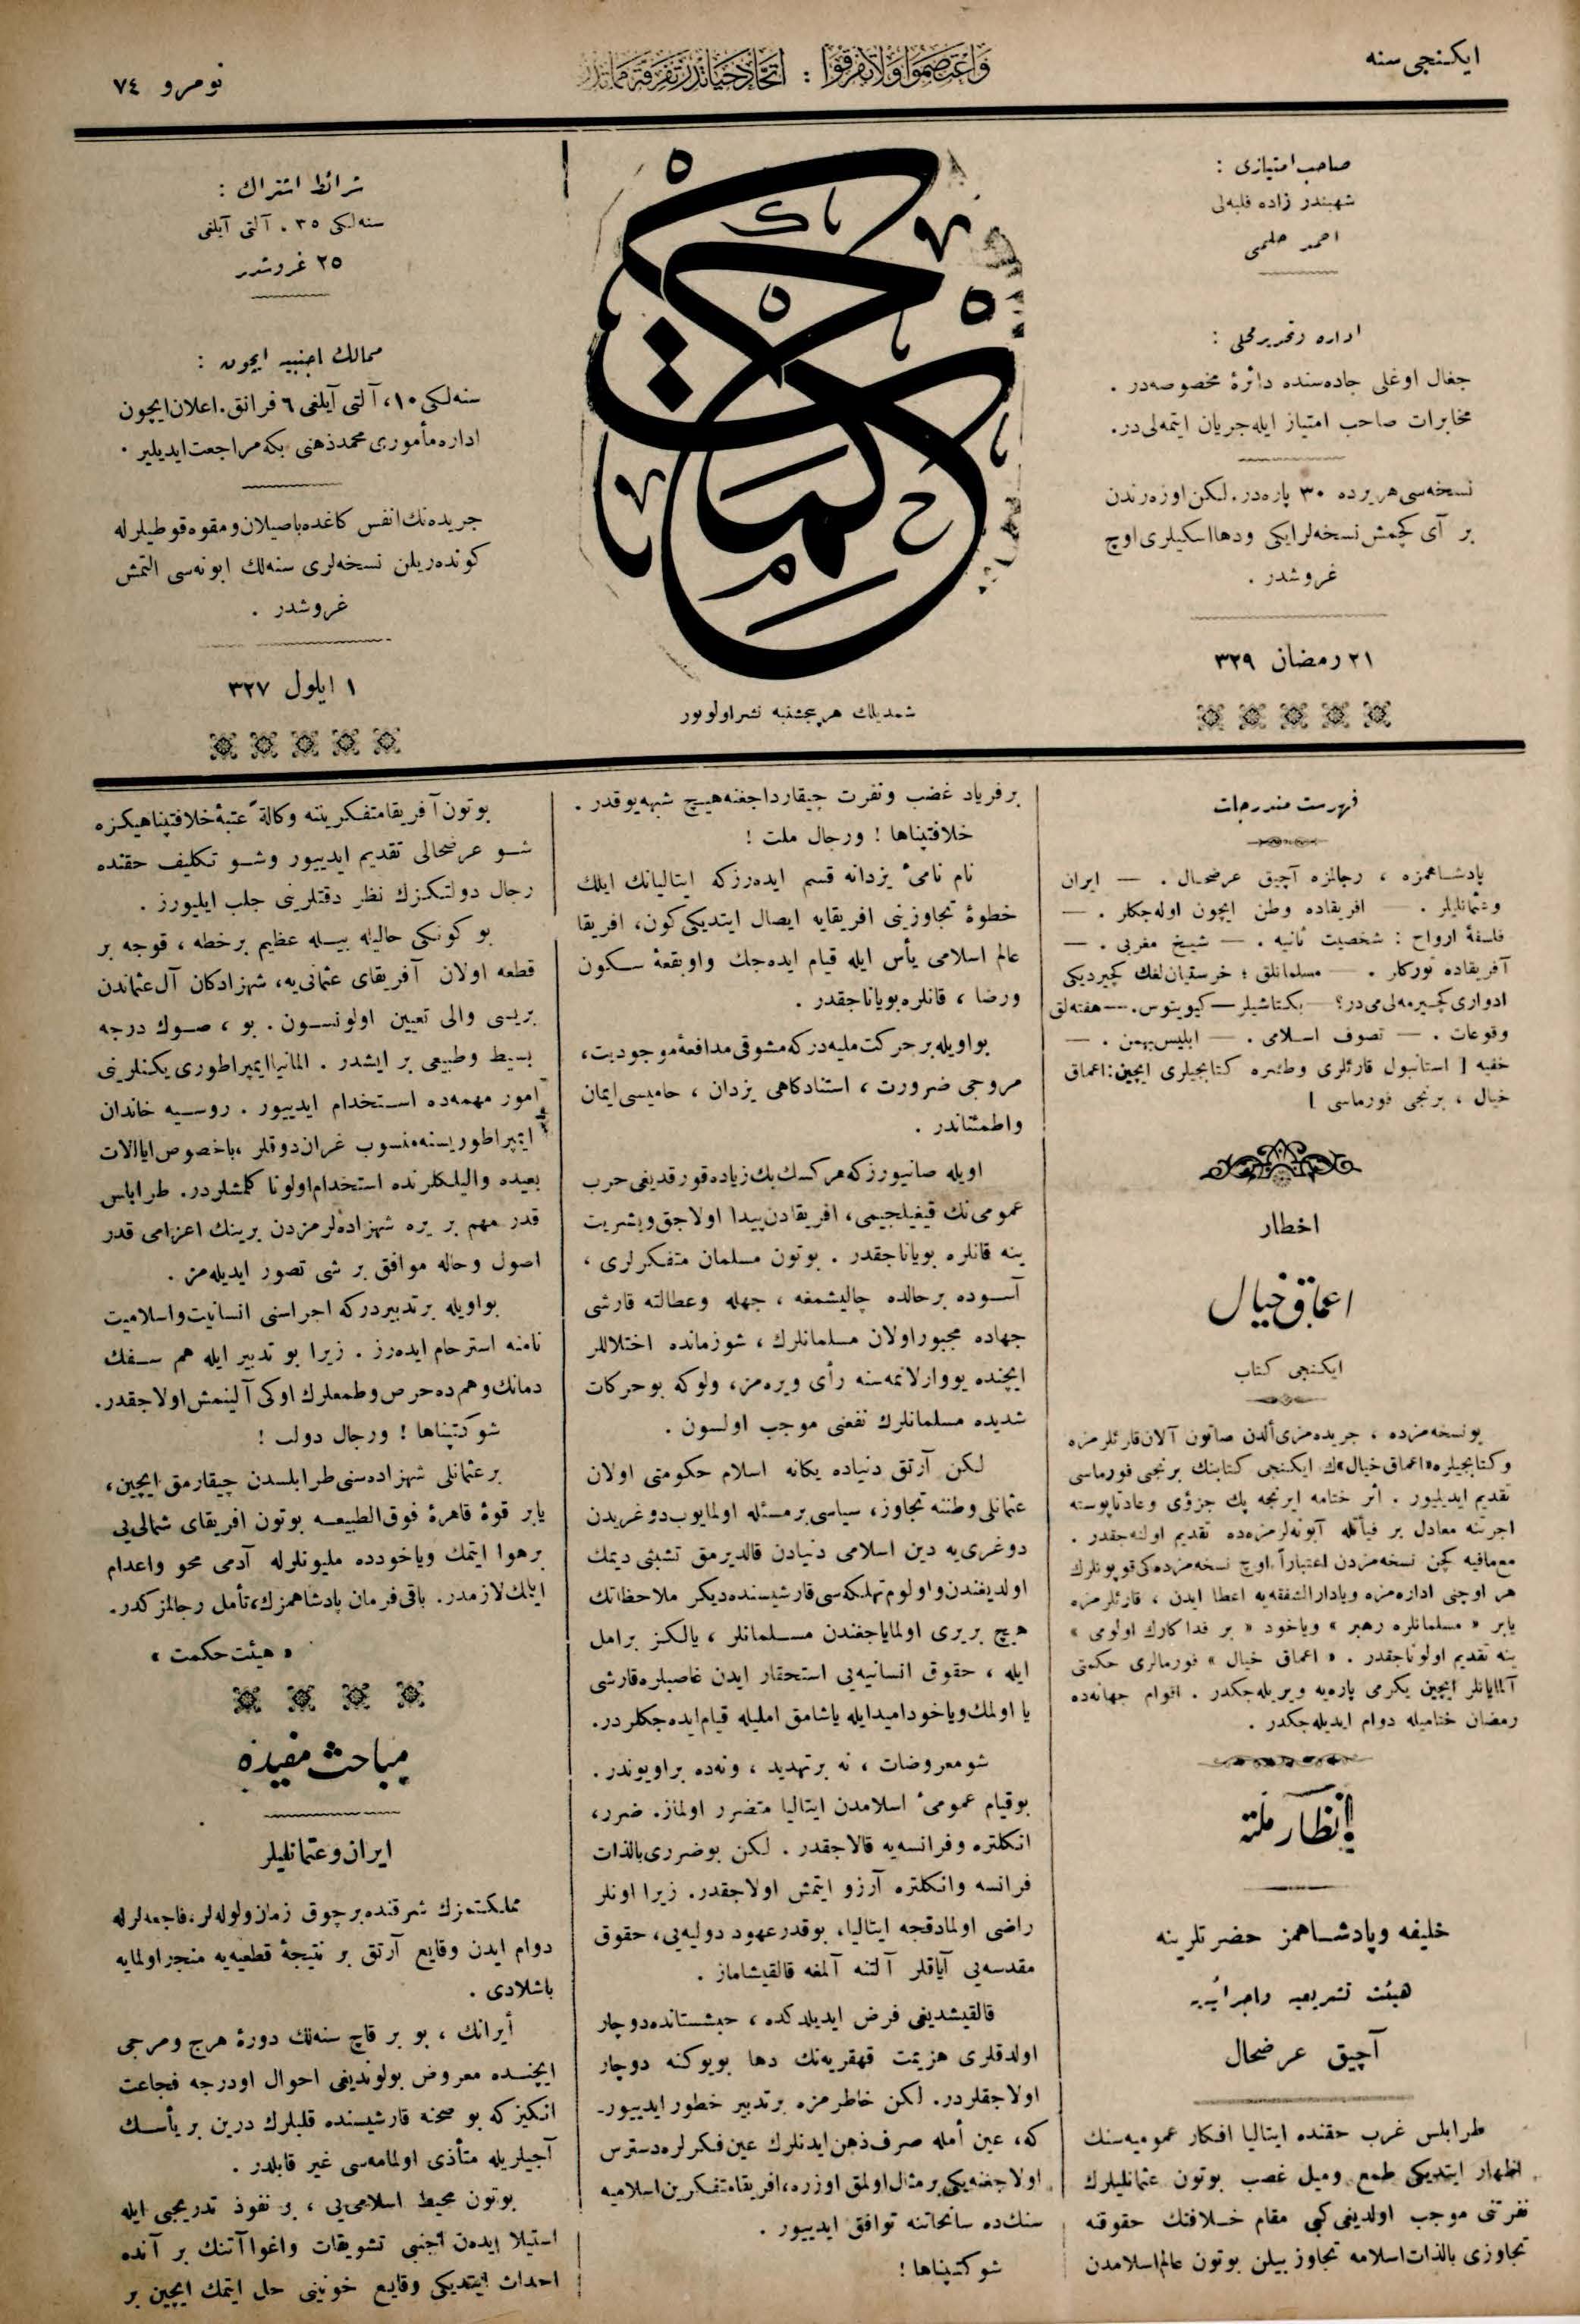 ایكنجی سنه
وَاعْتَصِمُوا وَلَا تَفَرَّقُوا : اتحاد حیاتدر تفرقه مماتدر
نومرو ٧٤
صاحب امتیازی :
شهبندر زاده فلبه‌لی
احمد حلمی
اداره و تحریر محلی :
جغال اوغلی جاده‌سنده دائرهٔ مخصوصه‌در .
مخابرات صاحب امتیاز ایله جریان ایتمه‌لی در.
نسخه‌سی هر یرده ٣٠ پاره‌در. لكن اوزه‌رندن
بر آی كچمش نسخه‌لر ایكی ودها اسكیلری اوچ
غروشدر .
٢١ رمضان ٣٢٩
حكمت
شمدیلك هر پنجشنبه نشر اولونور
شرائط اشتراك :
سنه‌لكی ٣٥ ، آلتی آیلغی
٢٥ غروشدر
ممالك اجنبیه ایچون :
سنه‌لكی ١٠، آلتی آیلغی ٦ فرانق. اعلان ایچون
اداره مأموری محمد ذهنی بكه مراجعت ایدیلیر .
جریده‌نك انفس كاغده باصیلان و مقوه قوطیلرله
كونده‌ریلن نسخه‌لری سنه‌لك ابونه‌سی التمش
غروشدر .
١ ایلول ٣٢٧
فهرست مندرجات
پادشاهمزه ، رجالمزه آچیق عرضحال . — ایران
وعثمانلیلر . — افریقاده وطن ایچون اوله‌جكلر . —
فلسفهٔ ارواح : شخصیت ثانیه . — شیخ مغربی . —
آفریقاده توركلر . — مسلمانلق ؛ خرستیانلغك كچیردیكی
ادواری كچیرمه‌لی می‌در؟ — بكتاشیلر — كیوینوس. — هفته‌لق
وقوعات . — تصوف اسلامی . — ابلیس بهمن . —
خفیه [ استانبول قارئلری وطشره كتابجیلری ایچین: اعماق
خیال ، برنجی فورماسی ]
اخطار
اعماق خیال
ایكنجی كتاب
بو نسخه‌مزده ، جریده‌مزی ألدن صاتون آلان قارئلرمزه
وكتابجیلره «اعماق خیال»ك ایكنجی كتابنك برنجی فورماسی
تقدیم ایدیلیور . اثر ختامه ایرنجه پك جزؤی وعادتا پوسته
اجرتنه معادل بر فیأتله آبونه‌لرمزه‌ده تقدیم اولنه‌جقدر .
مع‌مافیه كچن نسخه‌مزدن اعتباراً اوچ نسخه‌مزده‌كی قوپونلرك
هر اوچنی اداره‌مزه ویا دارالشفقه‌یه اعطا ایدن ، قارئلرمزه
یا بر « مسلمانلره رهبر » ویاخود « بر فداكارك اولومی »
ینه تقدیم اولوناجقدر . « اعماق خیال » فورمالری حكمتی
آلمایانلر ایچین یكرمی پاره‌یه ویریله‌جكدر . اقوام جهانده
رمضان ختامیله دوام ایدیله‌جكدر .
انظار ملته
خلیفه و پادشاهمز حضرتلرینه
هیئت تشریعیه واجرائیه‌یه
آچیق عرضحال
طرابلس غرب حقنده ایتالیا افكار عمومیه‌سنك
اظهار ایتدیكی طمع ومیل غصب بوتون عثمانلیلرك
نفرتنی موجب اولدیغی كبی مقام خلافتك حقوقنه
تجاوزی بالذات اسلامه تجاوز بیلن بوتون عالم اسلامدن
بر فریاد غضب ونفرت جیقارداجغنه هیچ شبهه یوقدر .
خلافتپناها ! ورجال ملت !
نام نامیٔ یزدانه قسم ایده‌رزكه ایتالیانك ایلك
خطوهٔ تجاوزینی افریقایه ایصال ایتدیكی كون، افریقا
عالم اسلامی یأس ایله قیام ایده‌جك واوبقعهٔ سكون
ورضا ، قانلره بویاناجقدر .
بو اویله بر حركت ملیه‌دركه مشوقی مدافعهٔ موجودیت،
مروجی ضرورت ، استنادكاهی یزدان ، حامیسی ایمان
واطمئناندر .
اویله صانیورزكه هركسك پك زیاده قورقدیغی حرب
عمومی‌نك قیغیلجیمی، افریقادن پیدا اولاجق و بشریت
ینه قانلره بویاناجقدر . بوتون مسلمان متفكرلری ،
آسوده بر حالده چالیشمغه ، جهله وعطالته قارشی
جهاده مجبور اولان مسلمانلرك ، شو زمانده اختلاللر
ایچنده یووارلانمه‌سنه رأی ویره‌مز، ولوكه بو حركات
شدیده مسلمانلرك نفعنی موجب اولسون .
لكن آرتق دنیاده یكانه اسلام حكومتی اولان
عثمانلی وطننه تجاوز، سیاسی بر مسئله اولمایوب دوغریدن
دوغری‌یه دین اسلامی دنیادن قالدیرمق تشبثی دیمك
اولدیغندن واولوم تهلكه‌سی قارشیسنده دیكر ملاحظاتك
هیچ بریری اولمایاجغندن مسلمانلر ، یالكز بر امل
ایله ، حقوق انسانیه‌یی استحقار ایدن غاصبلره قارشی
یا اولمك ویاخود امید ایله یاشامق املیله قیام ایده‌جكلردر.
شو معروضات ، نه بر تهدید ، ونه‌ده بر اویوندر .
بو قیام عمومیٔ اسلامدن ایتالیا متضرر اولماز. ضرر،
انكلتره وفرانسه‌یه قالاجقدر . لكن بو ضرری بالذات
فرانسه وانكلتره آرزو ایتمش اولاجقدر. زیرا اونلر
راضی اولمادقجه ایتالیا، بوقدر عهود دولیه‌یی، حقوق
مقدسه‌یی آیاقلر آلتنه آلمغه قالقیشاماز .
قالقیشدیغی فرض ایدیلدكده ، حبشستانده دوچار
اولدقلری هزیمت قهقریه‌نك دها بویوكنه دوچار
اولاجقلردر. لكن خاطرمزه بر تدبیر خطور ایدییور-
كه، عین أمله صرف ذهن ایدنلرك عین فكرلره دسترس
اولاجغنه یكی بر مثال اولمق اوزره، افریقا متفكرین اسلامیه
سنك‌ده سانحاتنه توافق ایدییور .
شوكتپناها !
بوتون آفریقا متفكریننه وكالةً عتبهٔ خلافتپناهیكزه
شو عرضحالی تقدیم ایدییور وشو تكلیف حقنده
رجال دولتكزك نظر دقتلرینی جلب ایلیورز .
بو كونكی حالیله بیله عظیم بر خطه ، قوجه بر
قطعه اولان آفریقای عثمانی‌یه، شهزادكان آل عثماندن
بریسی والی تعیین اولونسون. بو ، صوك درجه
بسیط وطبیعی بر ایشدر . المانیا ایمپراطوری یكنلرینی
امور مهمه‌ده استخدام ایدییور . روسیه خاندان
ایمپراطوریسنه منسوب غران دوقلر ، باخصوص ایالات
بعیده والیلكلرنده استخدام اولونا كلمشلردر. طرابلس
قدر مهم بر یره شهزاده‌لرمزدن برینك اعزامی قدر
اصول وحاله موافق بر شی تصور ایدیله‌مز .
بو اویله بر تدبیردركه اجراسنی انسانیت واسلامیت
نامنه استرحام ایده‌رز . زیرا بو تدبیر ایله هم سفك
دمانك وهم‌ده حرص وطمعلرك اوكی آلینمش اولاجقدر.
شوكتپناها ! ورجال دولت !
بر عثمانلی شهزاده‌سنی طرابلسدن چیقارمق ایچین،
یا بر قوهٔ قاهرهٔ فوق‌الطبیعه بوتون افریقای شمالی‌یی
برهوا ایتمك ویاخودده ملیونلرله آدمی محو واعدام
ایتمك لازمدر. باقی فرمان پادشاهمزك، تأمل رجالمزكدر.
« هیئت حكمت »
مباحث مفیده
ایران وعثمانلیلر
مملكتمزك شرقنده بر چوق زمان ولوله‌لر، فاجعه‌لرله
دوام ایدن وقایع آرتق بر نتیجهٔ قطعیه‌یه منجر اولمایه
باشلادی .
أیرانك ، بو بر قاچ سنه‌لك دورهٔ هرج ومرجی
ایچنده معروض بولوندیغی احوال اودرجه فجاعت
انكیزكه بو صحنه قارشیسنده قلبلرك درین بر یأسك
آجیلریله متأذی اولمامه‌سی غیر قابلدر .
بوتون محیط اسلامی‌یی ، بر نفوذ تدریجی ایله
استیلا ایده‌ن اجنبی تشویقات واغواآتنك بر آنده
احداث ایتدیكی وقایع خونینی حل ایتمك ایچین بر